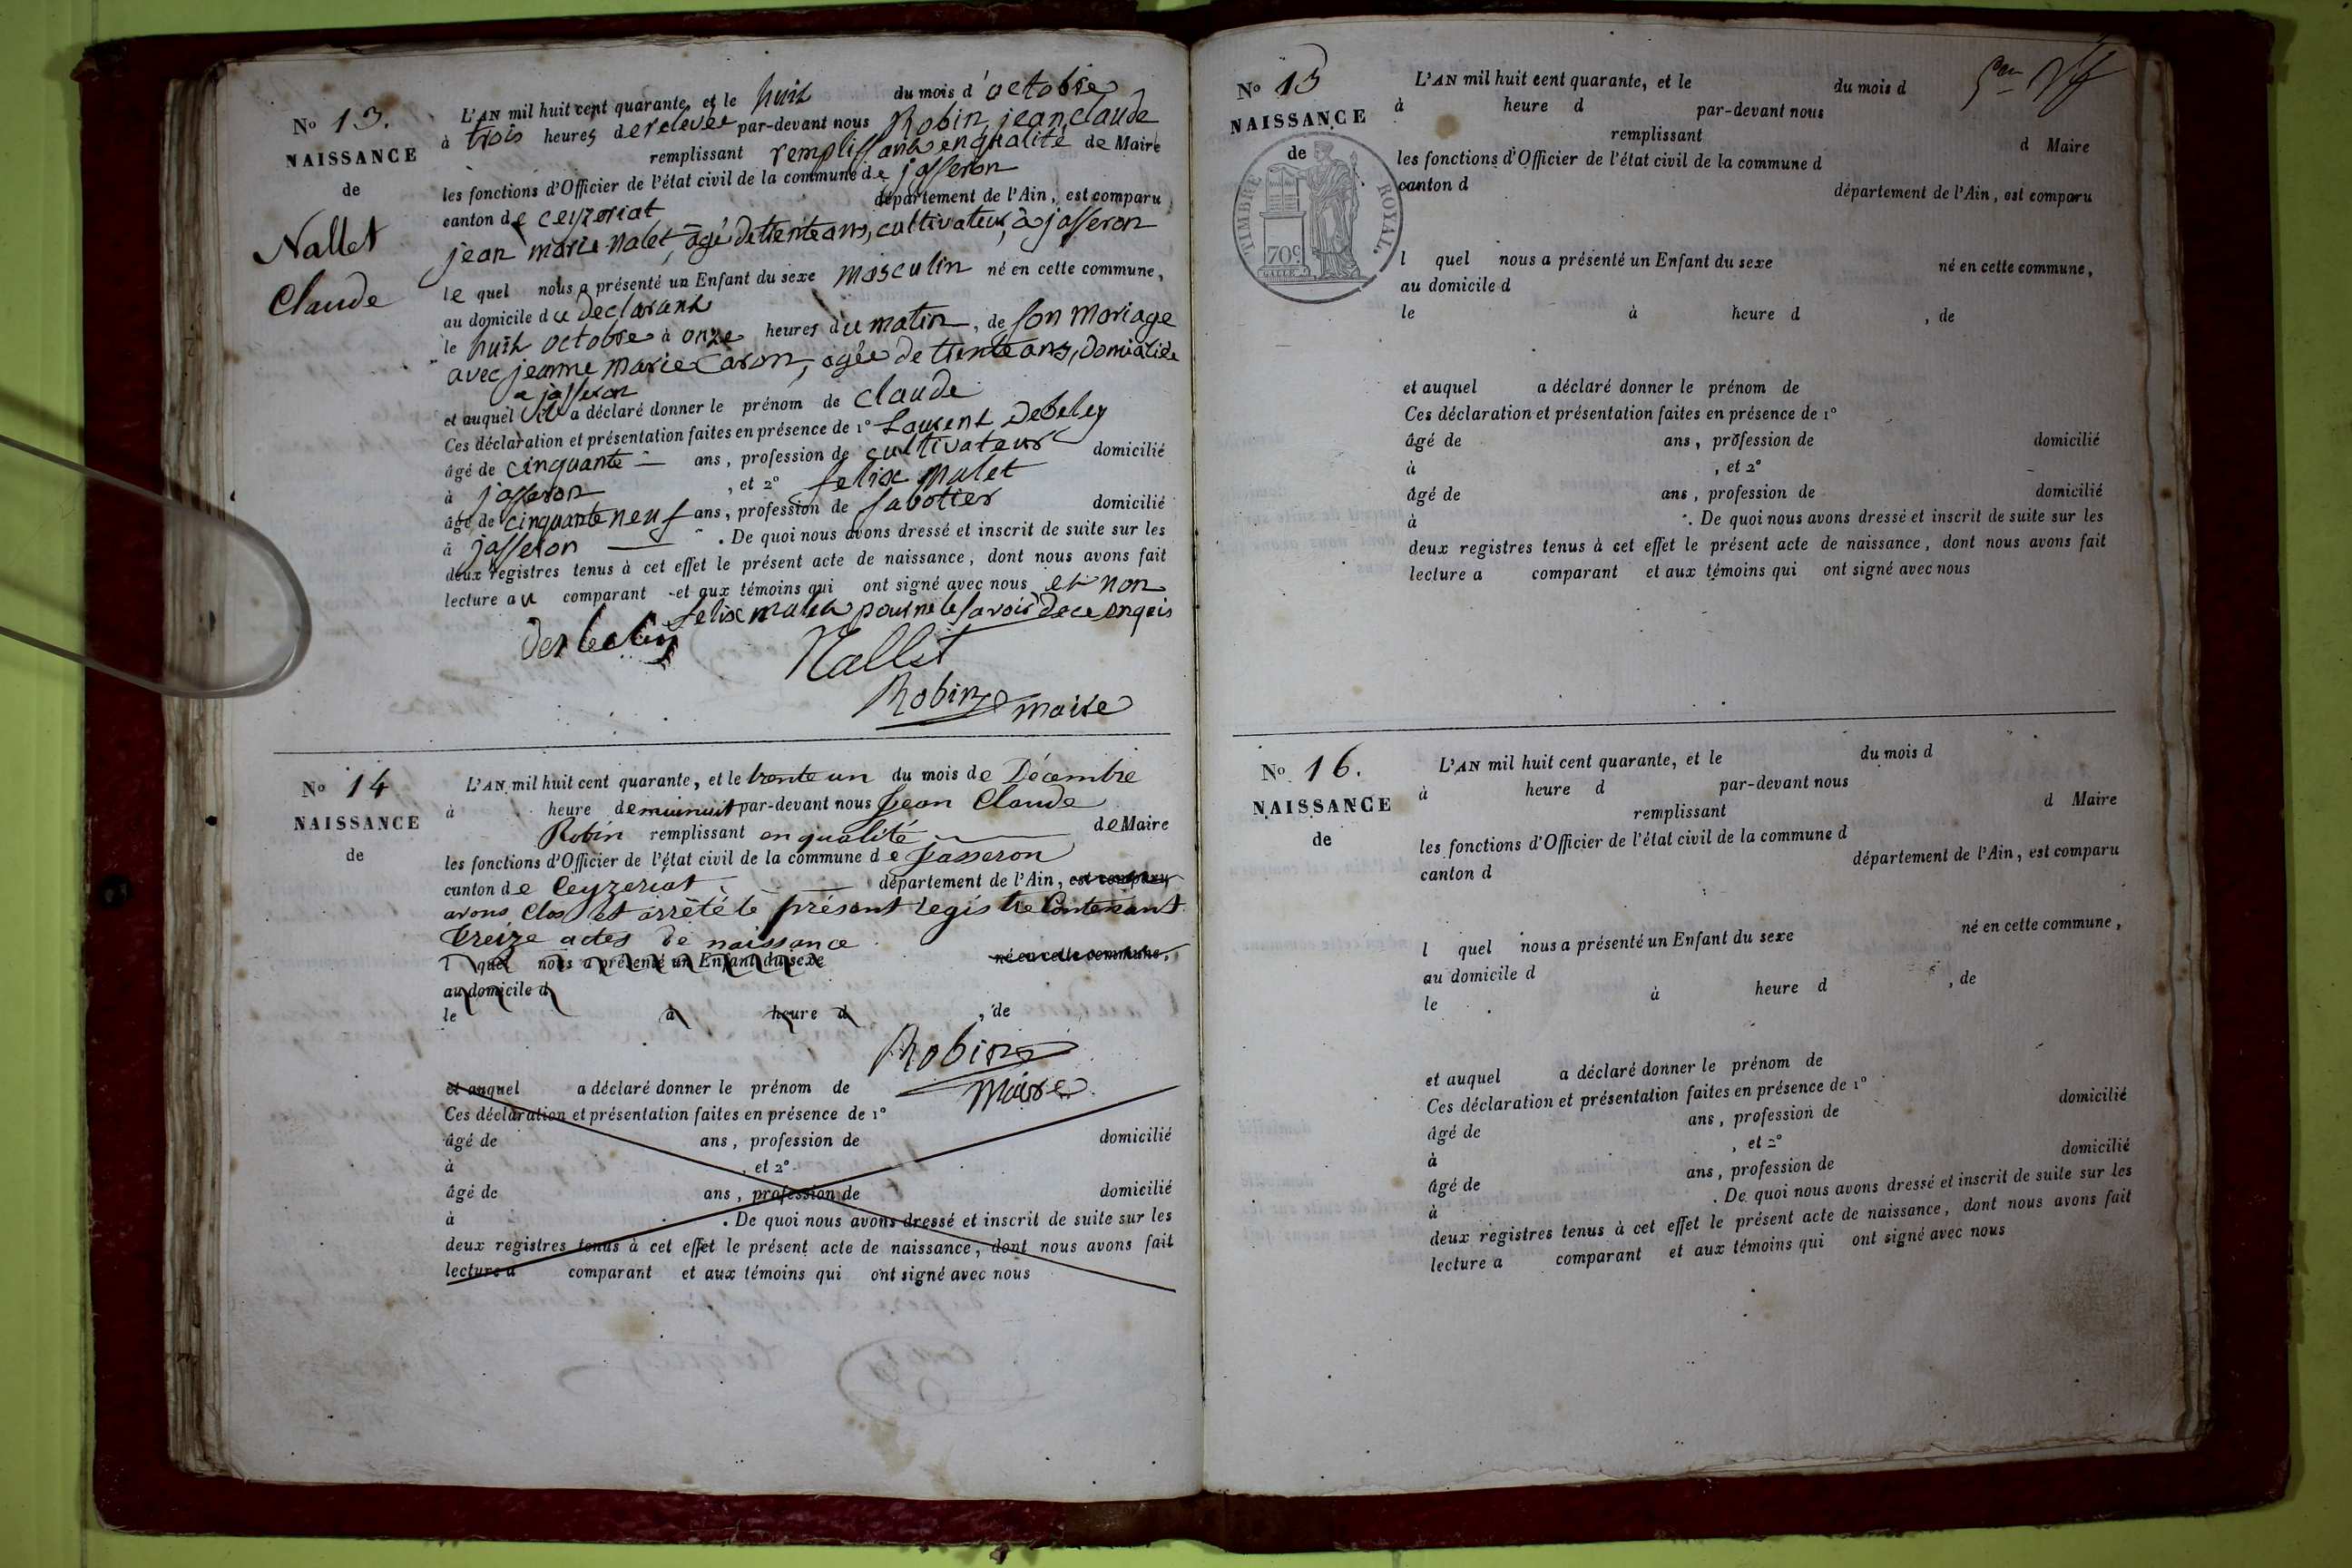 No 13.
NAISSANCE
de
Nallet
Claude
L'AN mil huit cent quarante, et le huit du mois d'octobre
à trois heures de relevée par-devant nous Robin, jean claude
remplissant remplissant en qualité de Maire
les fonctions d'Officier de l'état civil de la commune de jasseron
canton de ceyzeriat département de l'Ain, est comparu
jean marie nalet, âgé de trente ans, cultivateur, à jasseron
le quel nous a présenté un Enfant du sexe masculin né en cette commune,
au domicile du declarant
le huit octobre à onze heures du matin, de son mariage
avec jeanne marie Caron, agée de trente ans, domiciliée
a jasseron
et auquel il a déclaré donner le prénom de claude
Ces déclaration et présentation faites en présence de 1° Laurent Debeley
âgé de cinquante ans, profession de cultivateur domicilié
à jasseron, et 2° felix malet
âgé de cinquante neuf ans, profession de sabotier domicilié
à jasseron. De quoi nous avons dressé et inscrit de suite sur les
deux registres tenus à cet effet le présent acte de naissance, dont nous avons fait
lecture au comparant et aux témoins qui ont signé avec nous et non
felix malet pour ne le savoir de ce enquis
Nallet
Robin maire
No 14
NAISSANCE
de
L'AN mil huit cent quarante, et le trente un du mois de Décembre
à heure de minuit par-devant nous Jean Claude
Robin remplissant en qualité de Maire
les fonctions d'Officier de l'état civil de la commune de Jasseron
canton de Ceyzeriat département de l'Ain, est comparu
avons Clos et arrêté le présent registre Contenant
treize actes de naissance
l quel nous a présenté un Enfant du sexe né en cette commune,
au domicile d
le à heure d , de
Robin
Maire
et auquel a déclaré donner le prénom de
Ces déclaration et présentation faites en présence de 1°
âgé de ans, profession de domicilié
à , et 2°
âgé de ans, profession de domicilié
à . De quoi nous avons dressé et inscrit de suite sur les
deux registres tenus à cet effet le présent acte de naissance, dont nous avons fait
lecture a comparant et aux témoins qui ont signé avec nous
No 15
NAISSANCE
de
TIMBRE ROYAL.
70c
L'AN mil huit cent quarante, et le du mois d
à heure d par-devant nous
remplissant d Maire
les fonctions d'Officier de l'état civil de la commune d
canton d département de l'Ain, est comparu
l quel nous a présenté un Enfant du sexe né en cette commune,
au domicile d
le à heure d , de
et auquel a déclaré donner le prénom de
Ces déclaration et présentation faites en présence de 1°
âgé de ans, profession de domicilié
à , et 2°
âgé de ans, profession de domicilié
à . De quoi nous avons dressé et inscrit de suite sur les
deux registres tenus à cet effet le présent acte de naissance, dont nous avons fait
lecture a comparant et aux témoins qui ont signé avec nous
No 16.
NAISSANCE
de
L'AN mil huit cent quarante, et le du mois d
à heure d par-devant nous
remplissant d Maire
les fonctions d'Officier de l'état civil de la commune d
canton d département de l'Ain, est comparu
l quel nous a présenté un Enfant du sexe né en cette commune,
au domicile d
le à heure d , de
et auquel a déclaré donner le prénom de
Ces déclaration et présentation faites en présence de 1°
âgé de ans, profession de domicilié
à , et 2°
âgé de ans, profession de domicilié
à . De quoi nous avons dressé et inscrit de suite sur les
deux registres tenus à cet effet le présent acte de naissance, dont nous avons fait
lecture a comparant et aux témoins qui ont signé avec nous